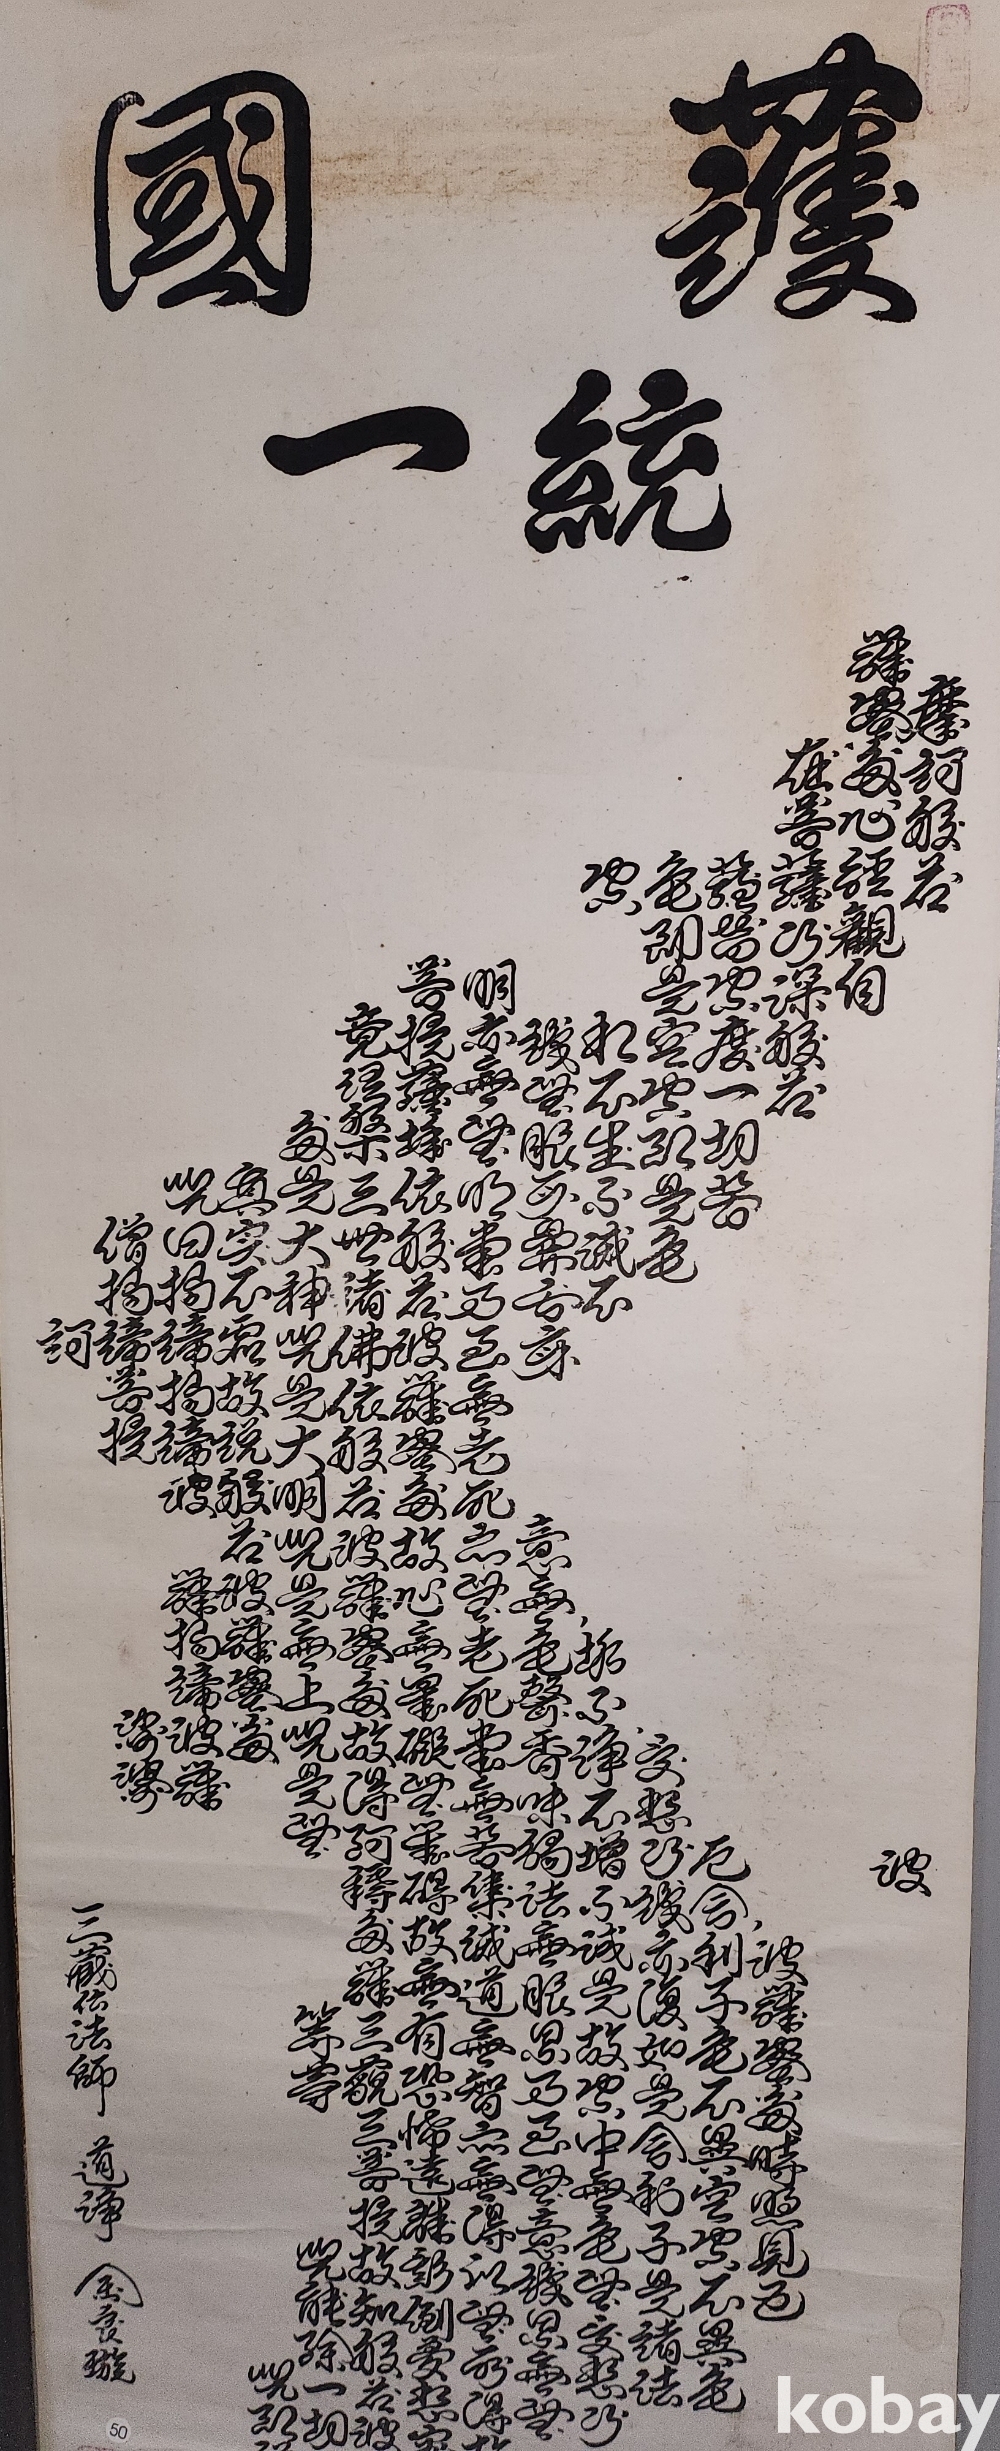 護國
統一
摩訶般若波
羅蜜多心經觀自
在菩薩行深般若波羅蜜多時照見五
蘊皆空度一切苦厄舍利子色不異空空不異色
色卽是空空卽是色受想行識亦復如是舍利子是諸法
空相不生不滅不垢不淨不增不減是故空中無色無受想行
識無眼耳鼻舌身意無色聲香味觸法無眼界乃至無意識界無無
明亦無無明盡乃至無老死亦無老死盡無苦集滅道無智亦無得以無所得故
菩提薩埵依般若波羅蜜多故心無罣礙無罣礙故無有恐怖遠離顚倒夢想究
竟涅槃三世諸佛依般若波羅蜜多故得阿耨多羅三藐三菩提故知般若波
多是大神呪是大明呪是無上呪是無等等呪能除一切
眞实不虛故說般若波羅蜜多呪卽說
呪曰揭諦揭諦波羅揭諦波羅
僧揭諦菩提娑婆
訶
三藏法師 道 金
50
kobay